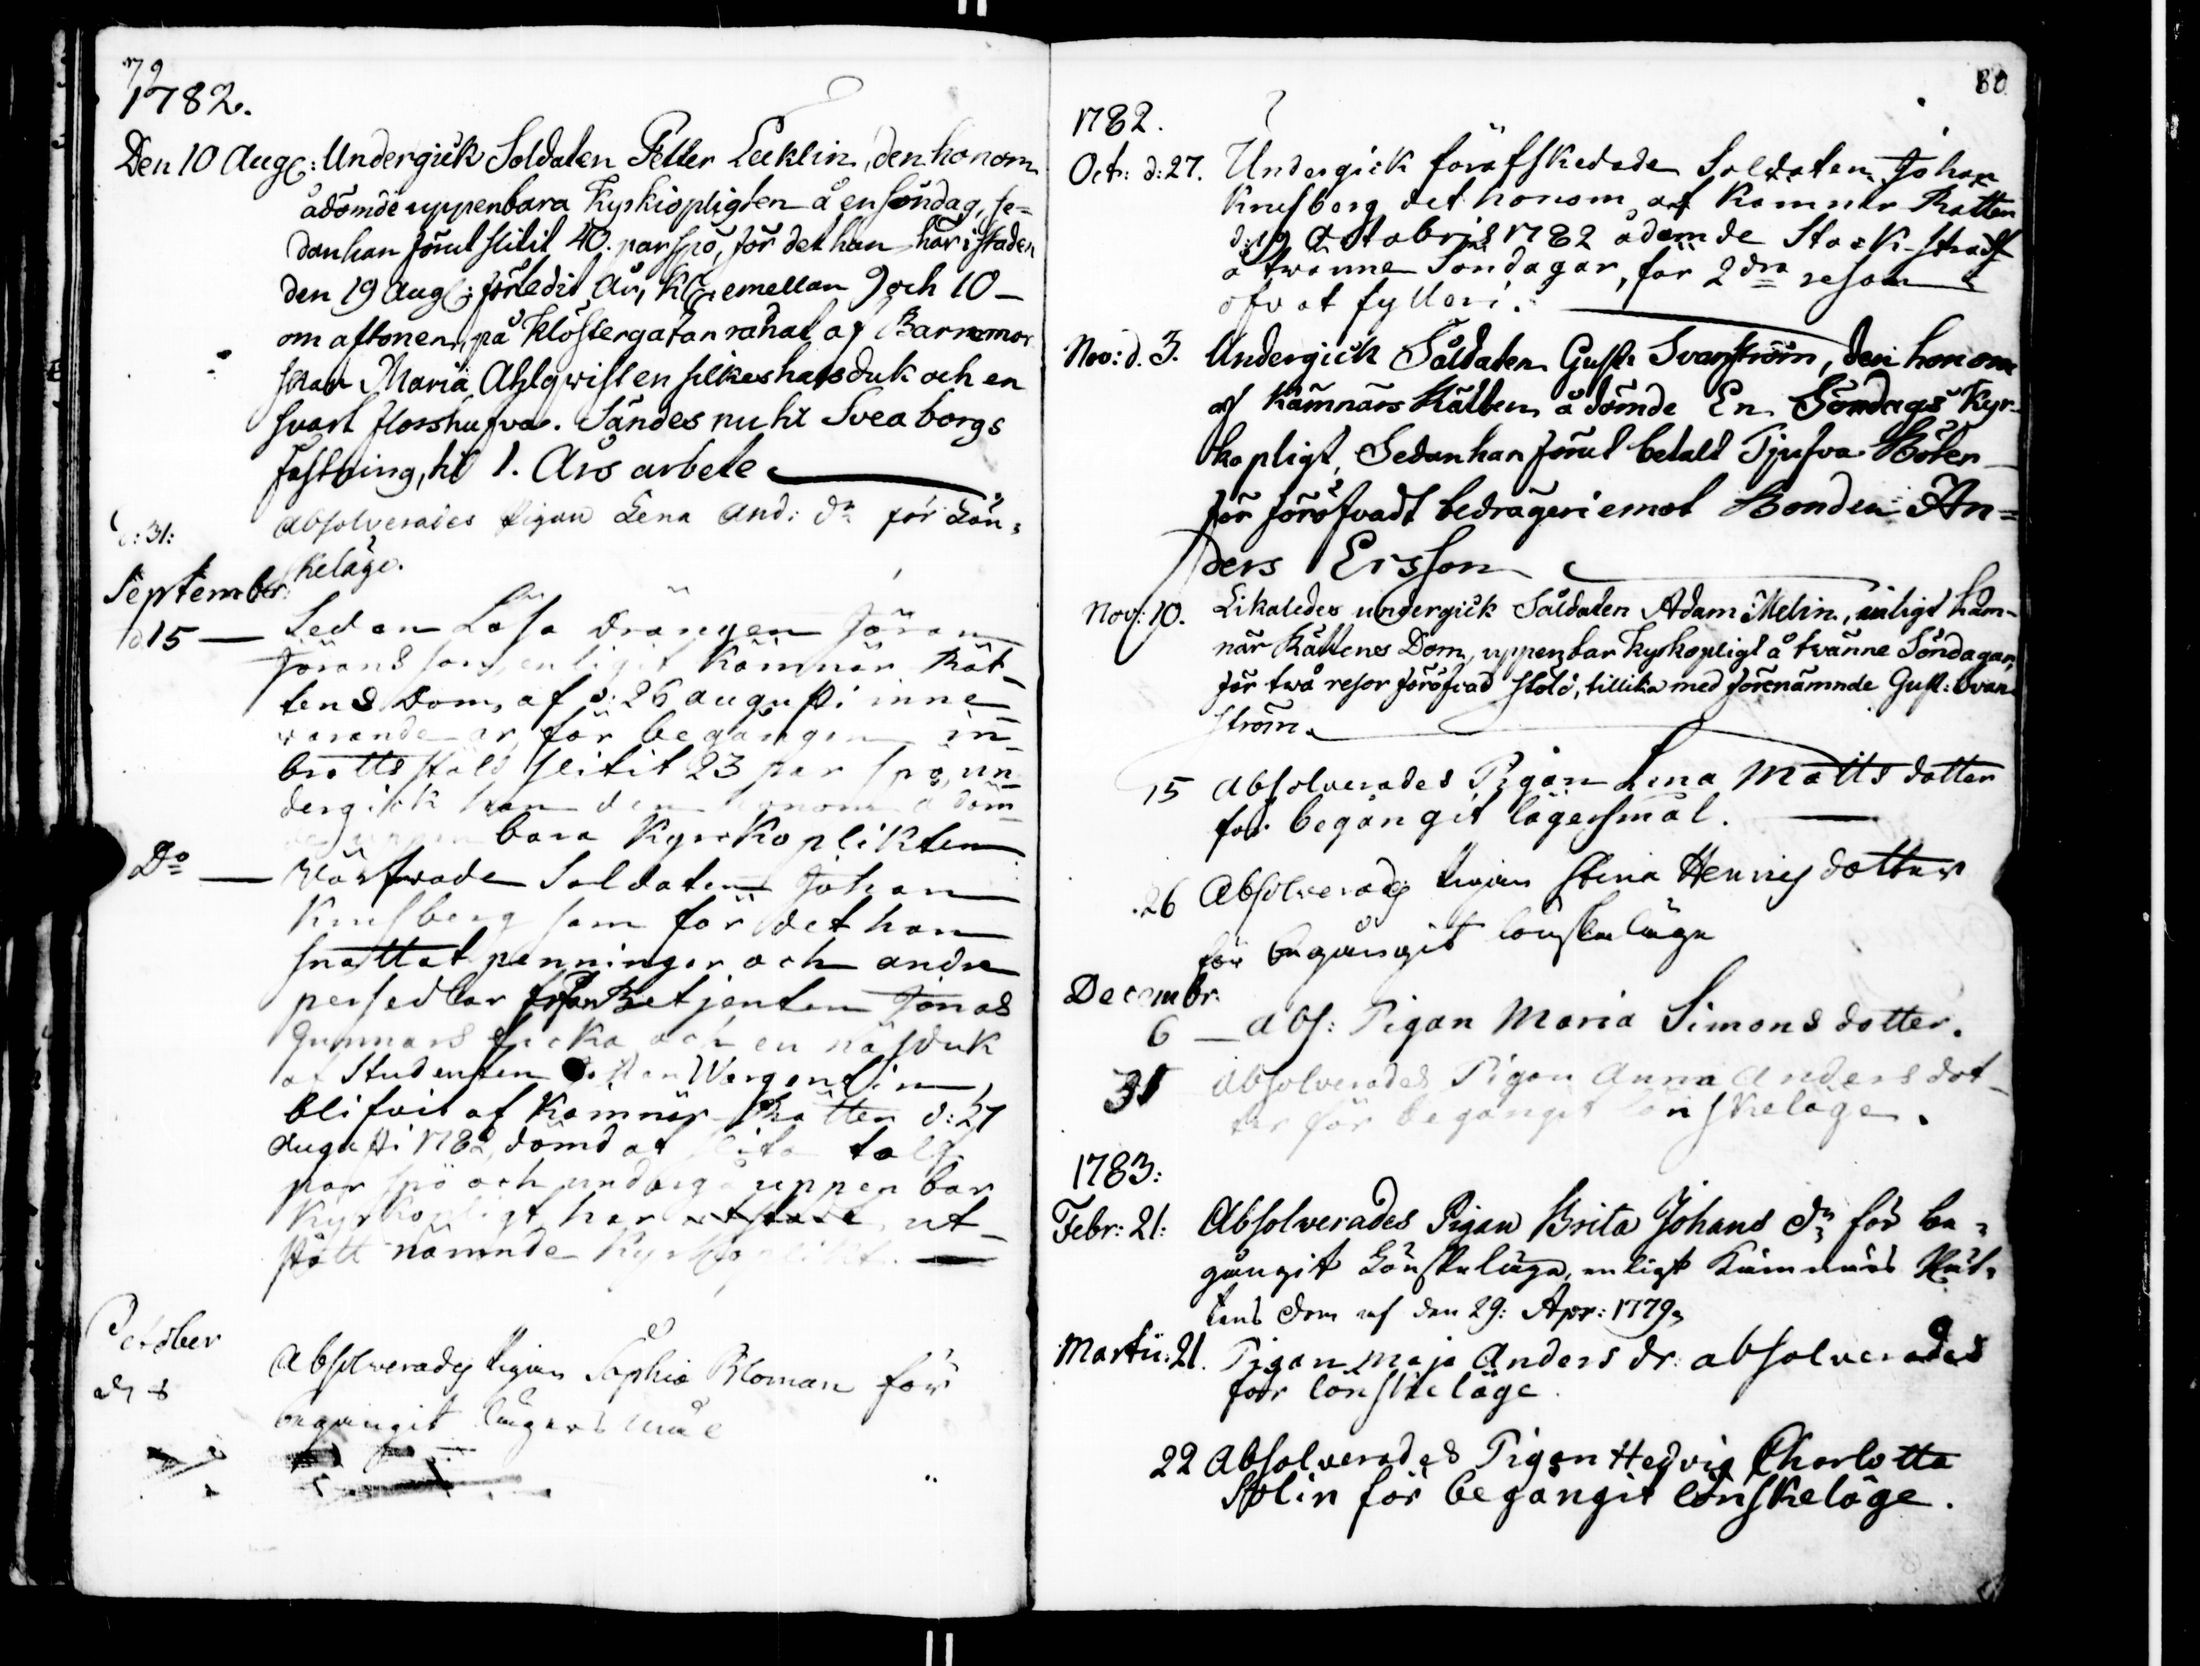 79
1782.
Den 10 Aug: Undergick Soldaten Petter Lecklin, den honom
ådömde uppenbara Kyrkiopligten å en söndag, se=
dan han förut slitit 40. par spö, för det han här i staden
den 19 Aug: förledit år, kl: emellan 9 och 10 –
om aftonen, på Klöstergatan rånat af Barnmor
skan Maria Ahlqwist en silkeshalsduk och en
svart florshufva. Sändes nu til Sveaborgs
fästning, til 1. Års arbete
d: 31: Absolverades Pigan Lena And: dr för Lön=
skeläge.
September
d. 15 — Sedan Lösa drängen Jöran
Jöransson, enligit Kämnärs Rät-
tens Dom, af d: 26 augusti inne-
warande år, för begången in-
brotts stöld slitit 23 par spö, un-
dergick han den honom ådöm-
de uppenbara Kyrkoplikten
Do — Värfvade Soldaten Johan
Knesberg som för det han
snattat penningar och andre
persedlar från Betjenten Jonas
Gunnars ficka och en näsduk
af Studenten Wargentin,
blifvit af Kämnärs Rätten d: 27
Augusti 1782, dömd at slita tolf
par spö och undergå uppenbar
Kyrkopligt, har utstådt ut-
stått nämnde Kyrkoplikt. —
October
d 8 Absolverades Pigan Sophia Bloman för
begångit lägersmål
80
1782.
Oct: d: 27. Undergick förafskedade Soldaten Johan
Knesberg det honom af Kämner Rätten
d: 19 Octobris 1782 ådömde Stock-straff
å twänne Söndagar, för 2dra resan
öfvat fylleri.
Nov: d. 3. Undergick Såldaten Gust: Svanström, den honom
af Kämnärs Rätten ådömde En Söndags Kyr-
kopligt, Sedan han förut betalt Tjufva Böter
för föröfvadt bedrägeri emot Bonden An=
ders Ersson
Nov: 10. Likaledes undergick Såldaten Adam Melin, enligt Käm-
när Rättenes Dom, uppenbar Kyrkopligt å tvänne Söndagar,
för twå resor föröfvad stöld, tillika med förenämnde Gust: Svan
ström.
15 Absolverades Pigan Lena Mattsdotter
för begångit lägersmål.
26 Absolverades Pigan Stina Henricsdotter
för begångit lönskeläge
Decembr:
6 — Abs: Pigan Maria Simonsdotter.
31 Absolverades Pigan Anna Andersdot-
ter för begångit lönskeläge.
1783:
Febr: 21: Absolverades Pigan Brita Johans dr för be=
gångit Lönskeläge, enligt Kämnärs Rät=
tens dom af den 29: Apr: 1779.
Martii: 21. Pigan Maja Anders dr: absolverades
för lönskeläge.
22 Absolverades Pigan Hedvig Charlotta
Stolin för begångit lönskeläge.